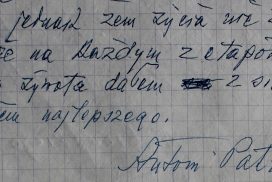 jednak żem życia nie
że na każdym z etapów
żywota dałem z s
najlepszego.
Antoni Pat